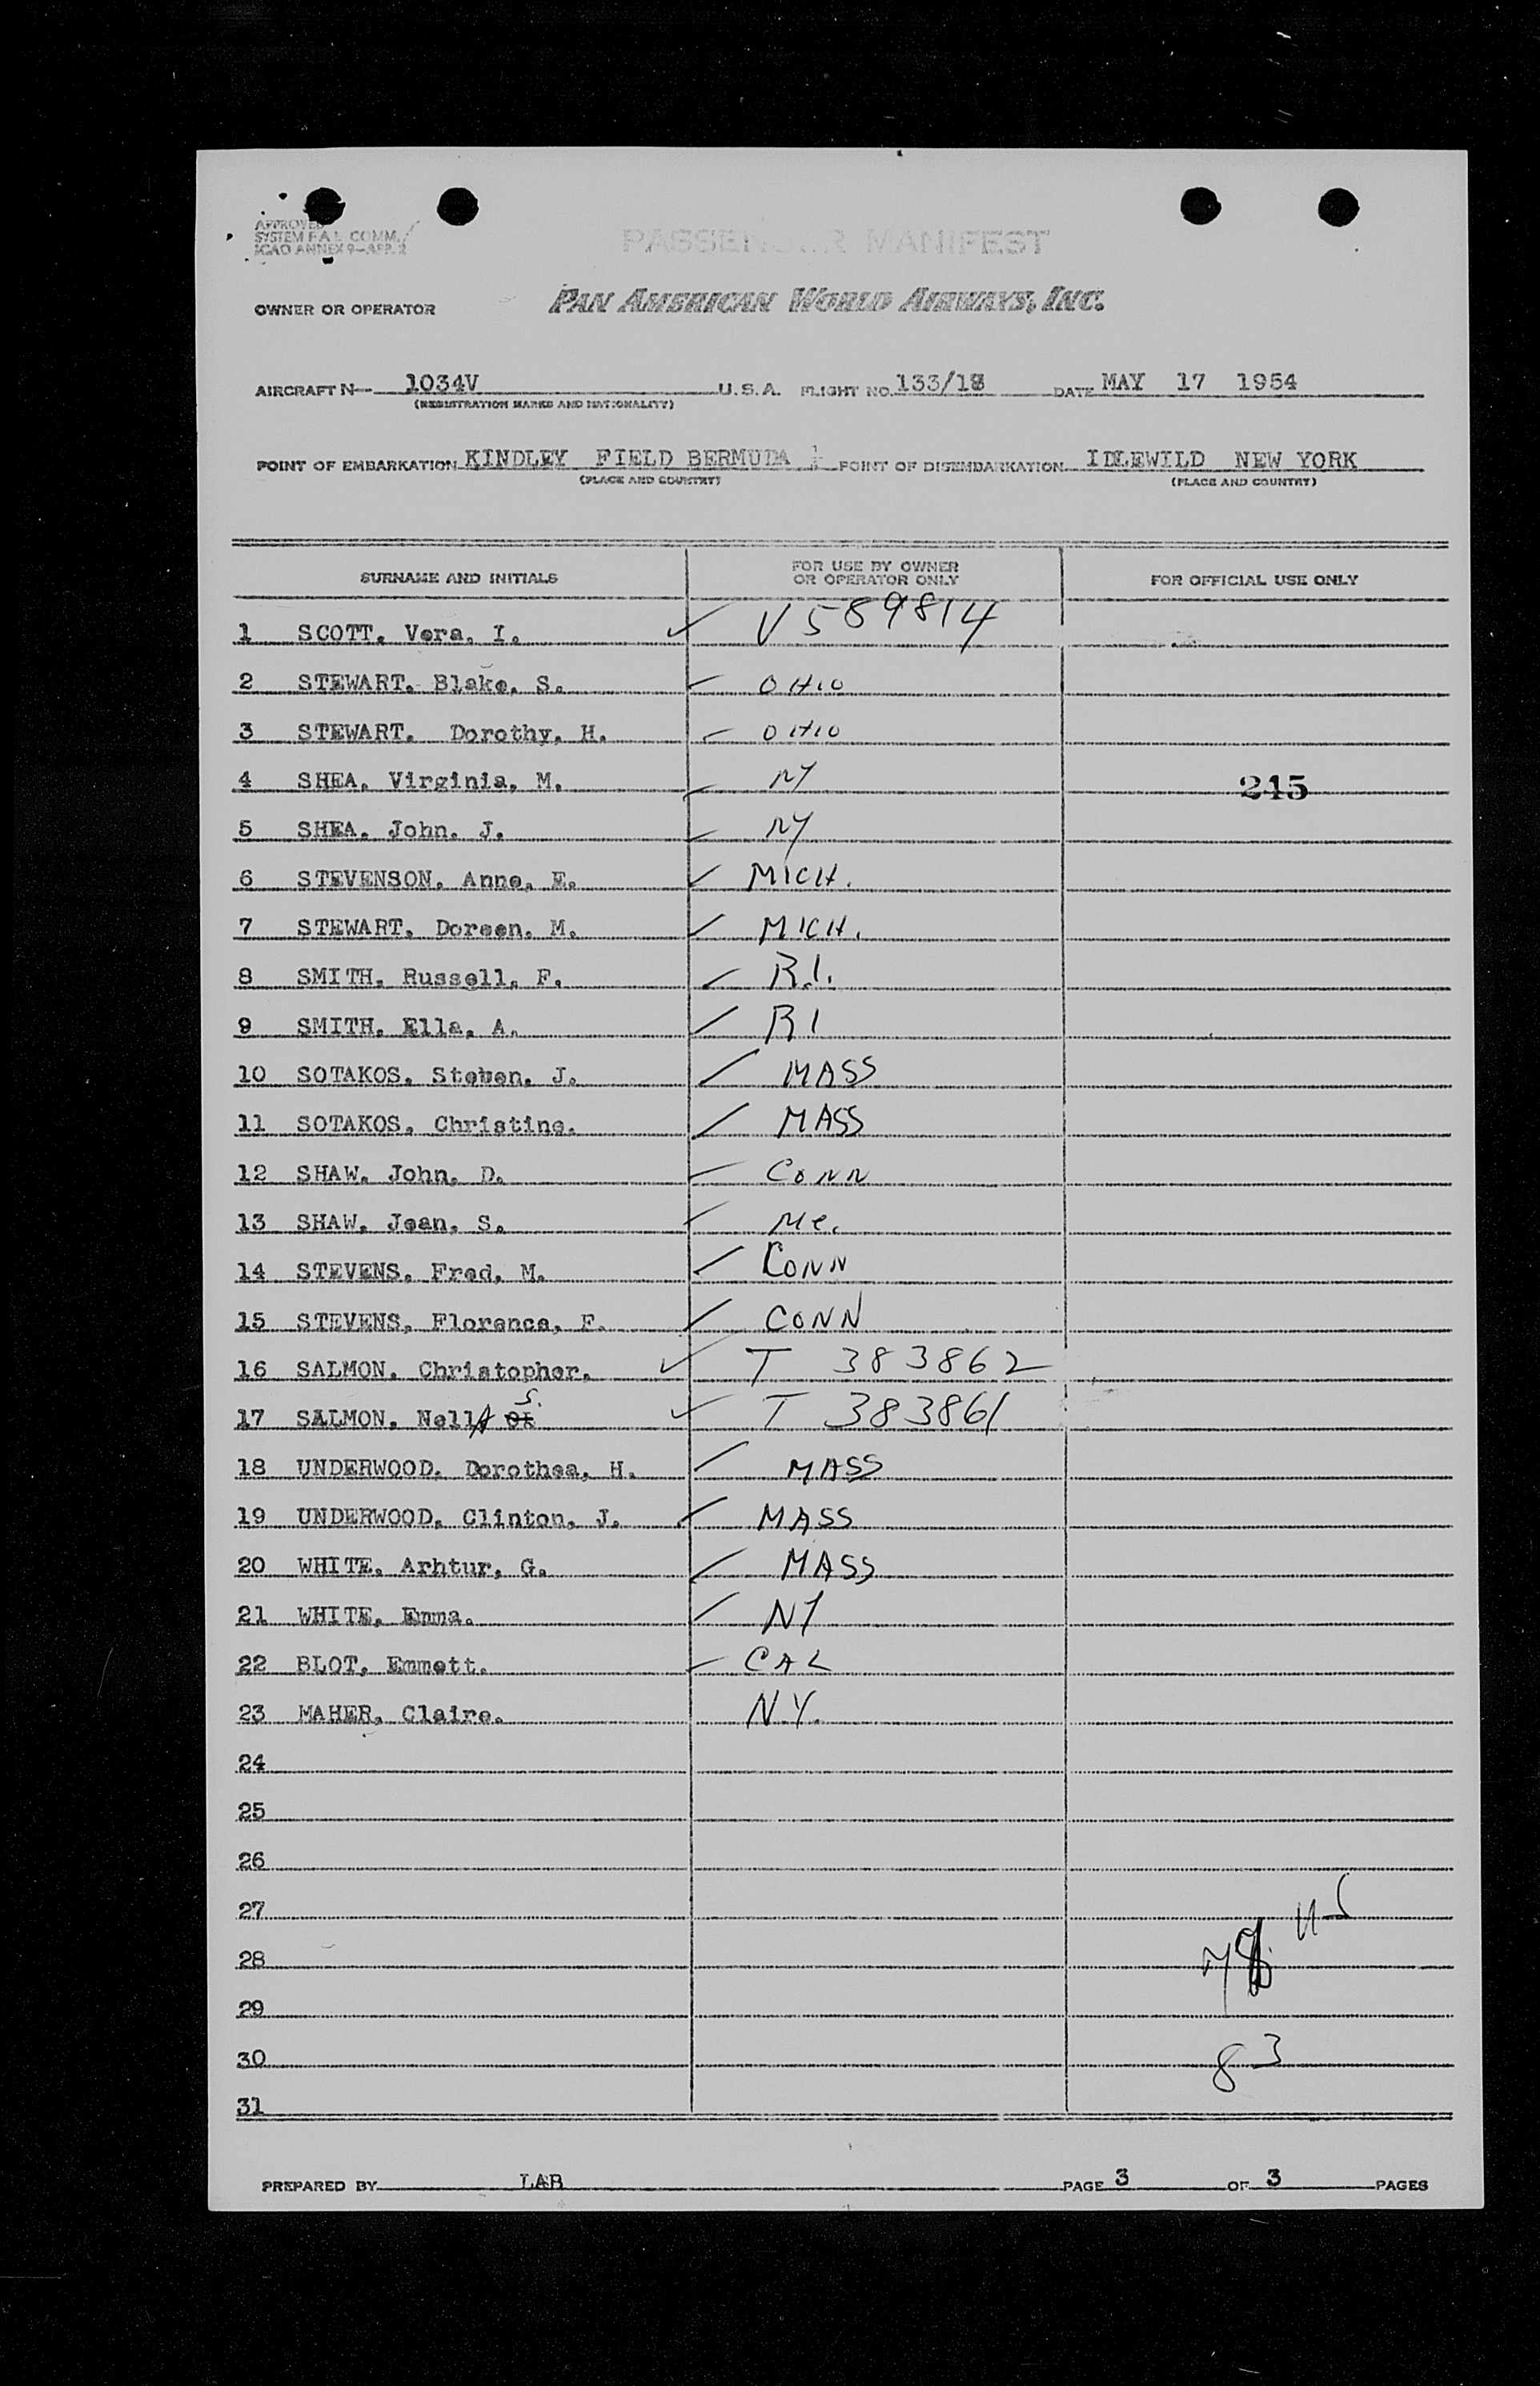 APPROVED
SYSTEM F.A.L. COMM.
ICAO ANNEX 9-APP. 2
PASSENGER MANIFEST
OWNER OR OPERATOR PAN AMERICAN WORLD AIRWAYS, INC.
AIRCRAFT N- 1034V U.S.A. FLIGHT NO. 133/18 DATE MAY 17 1954
(REGISTRATION MARKS AND NATIONALITY)
POINT OF EMBARKATION KINDLEY FIELD BERMUDA POINT OF DISEMBARKATION IDLEWILD NEW YORK
(PLACE AND COUNTRY) (PLACE AND COUNTRY)
SURNAME AND INITIALS FOR USE BY OWNER OR OPERATOR ONLY FOR OFFICIAL USE ONLY
1 SCOTT. Vera. I. ✓ V589814
2 STEWART. Blake. S. OHIO
3 STEWART. Dorothy. H. OHIO
4 SHEA. Virginia. M. NY 245
5 SHEA. John. J. NY
6 STEVENSON. Anne. E. ✓ MICH.
7 STEWART. Doreen. M. ✓ MICH.
8 SMITH. Russell. F. ✓ R.I.
9 SMITH. Ella. A. ✓ RI
10 SOTAKOS. Steven. J. ✓ MASS
11 SOTAKOS. Christine. ✓ MASS
12 SHAW. John. D. CONN
13 SHAW. Jean. S. ✓ Me.
14 STEVENS. Fred. M. ✓ CONN
15 STEVENS. Florence. F. ✓ CONN
16 SALMON. Christopher. ✓ T 383862
17 SALMON. Nella S. ✓ T 383861
18 UNDERWOOD. Dorothea. H. ✓ MASS
19 UNDERWOOD. Clinton. J. ✓ MASS
20 WHITE. Arhtur. G. ✓ MASS
21 WHITE. Emma. ✓ NY
22 BLOT. Emmett. CAL
23 MAHER. Claire. N.Y.
24
25
26
27
28
29
30 83
31
PREPARED BY LAB PAGE 3 OF 3 PAGES